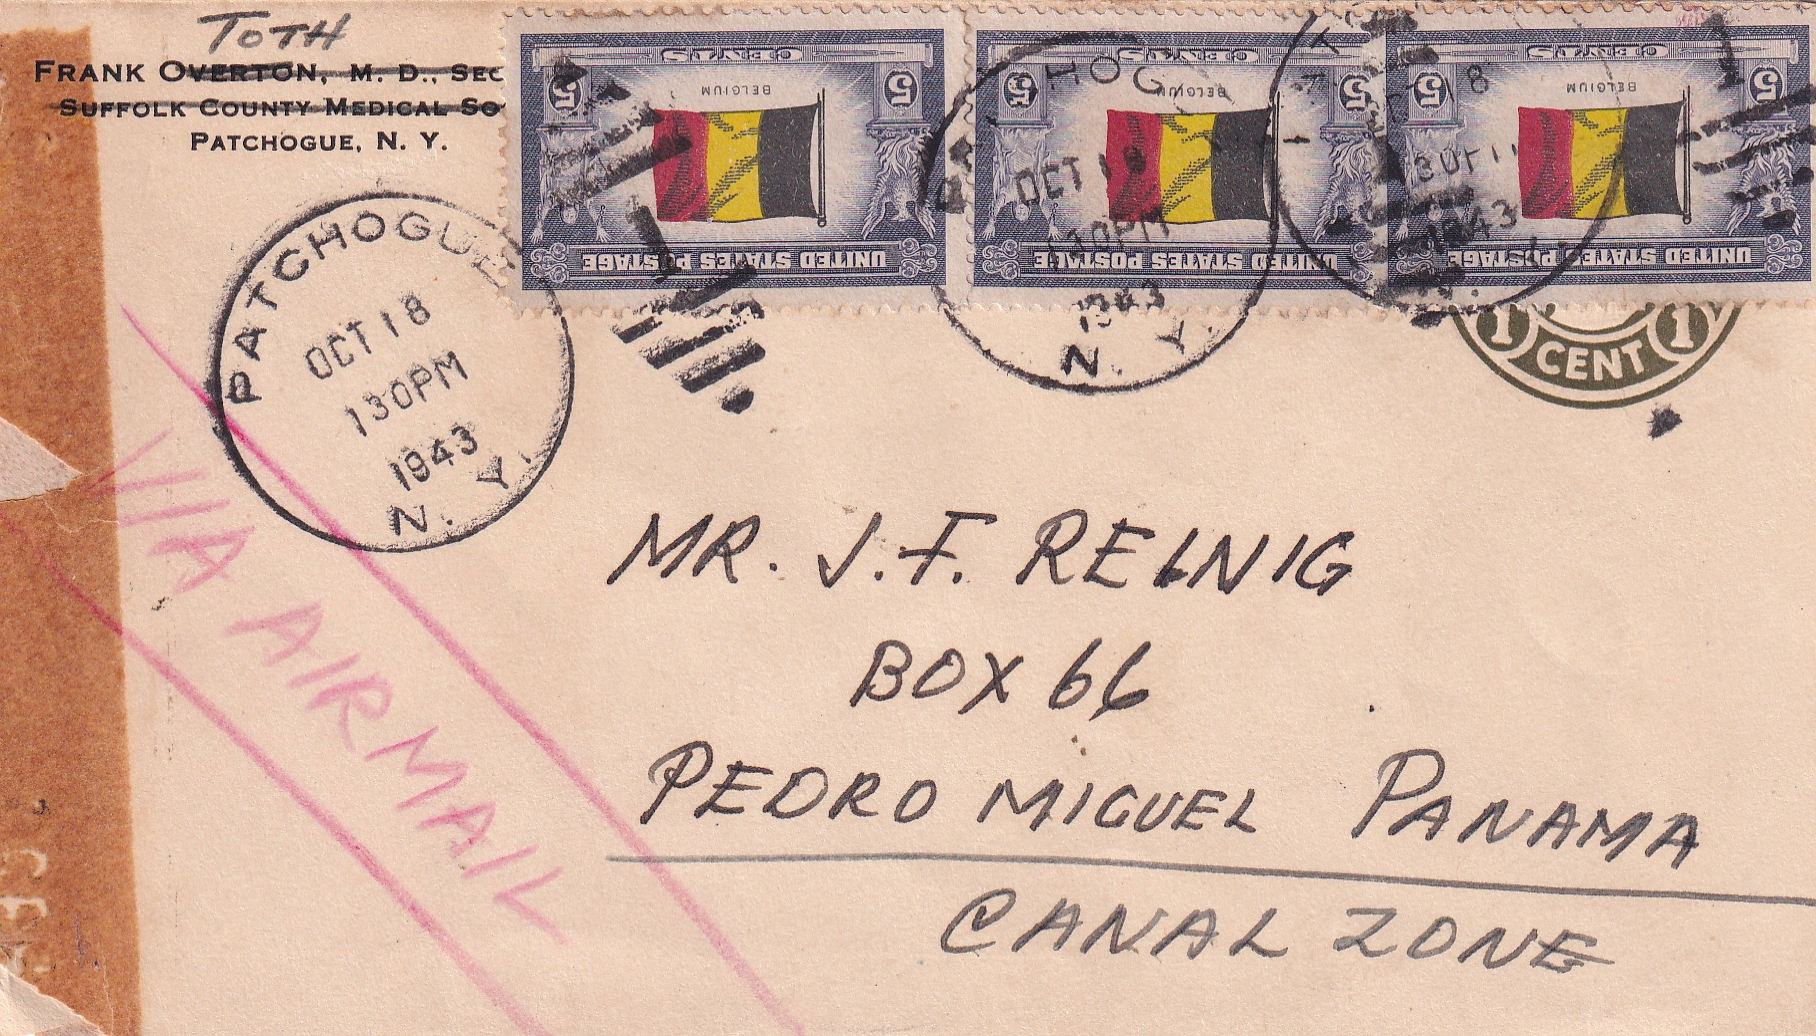 TOTH
FRANK OVERTON, M. D., SEC
SUFFOLK COUNTY MEDICAL SO
PATCHOGUE, N. Y.
5 CENTS 5
BELGIUM
UNITED STATES POSTAGE
5 CENTS 5
BELGIUM
UNITED STATES POSTAGE
5 CENTS 5
BELGIUM
UNITED STATES POSTAGE
1 CENT 1
PATCHOGUE
OCT 18
130PM
1943
N. Y.
OCT 18
130PM
1943
N. Y.
1943
VIA AIRMAIL
MR. J. F. REINIG
BOX 66
PEDRO MIGUEL PANAMA
CANAL ZONE